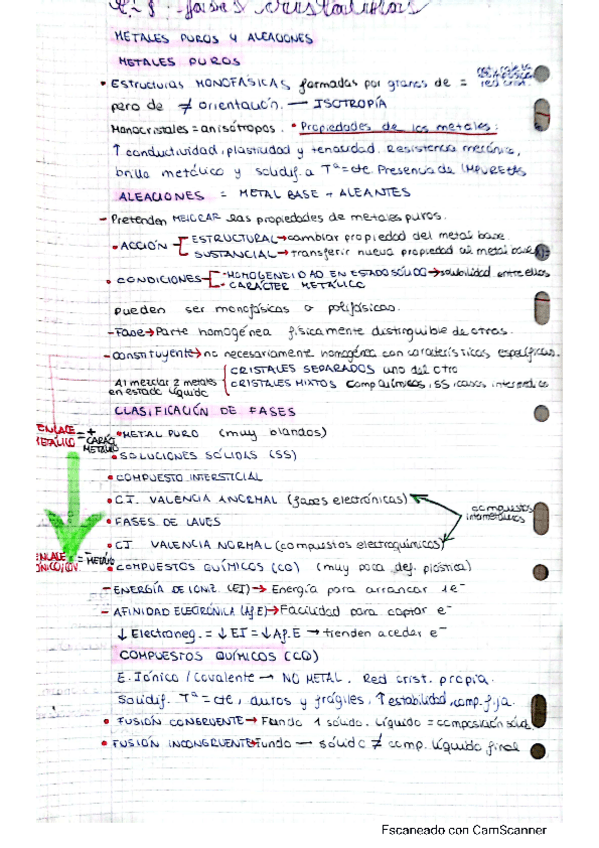 fases cristalinas
METALES PUROS Y ALEACIONES
METALES PUROS
• ESTRUCTURAS MONOFÁSICAS formadas por granos de = red crist.
pero de ≠ orientación. — ISOTROPÍA
Monocristales = anisótropos. • Propiedades de los metales:
↑ conductividad, plastividad y tenacidad. Resistencia mecánica,
brillo metálico y solidif. a Tª = cte. Presencia de IMPUREZAS
ALEACIONES = METAL BASE + ALEANTES
- Pretenden MEJORAR las propiedades de metales puros.
• ACCIÓN
ESTRUCTURAL → cambiar propiedad del metal base
SUSTANCIAL → transferir nueva propiedad al metal base
• CONDICIONES
- HOMOGENEIDAD EN ESTADO SÓLIDO → solubilidad entre ellos
- CARÁCTER METÁLICO
Pueden ser monofásicas o polifásicas.
- Fase → Parte homogénea físicamente distinguible de otras.
- Constituyente → no necesariamente homogéneo con características específicas.
Al mezclar 2 metales en estado líquido
CRISTALES SEPARADOS uno del otro
CRISTALES MIXTOS comp químicos, SS
CLASIFICACIÓN DE FASES
ENLACE METÁLICO = + CARÁC METÁLICO
• METAL PURO (muy blandos)
• SOLUCIONES SÓLIDAS (SS)
• COMPUESTO INTERSTICIAL
• CI. VALENCIA ANORMAL (fases electrónicas)
compuestos intermetálicos
• FASES DE LAVES
• CI VALENCIA NORMAL (compuestos electroquímicos)
ENLACE IÓNICO/COV = - METÁLICO
• COMPUESTOS QUÍMICOS (CQ) (muy poca def. plástica)
- ENERGÍA DE IONIZ. (EI) → Energía para arrancar 1e⁻
- AFINIDAD ELECTRÓNICA (Af.E) → Facilidad para captar e⁻
↓ Electroneg. = ↓ EI = ↓ Af.E → tienden a ceder e⁻
COMPUESTOS QUÍMICOS (CQ)
E. Iónico / Covalente → NO METAL. Red crist. propia.
Solidif. Tª = cte, duros y frágiles, ↑ estabilidad, comp. fija.
• FUSIÓN CONGRUENTE → Funde 1 sólido. Líquido = composición sólido
• FUSIÓN INCONGRUENTE → Funde — sólido ≠ comp. líquido final
Escaneado con CamScanner